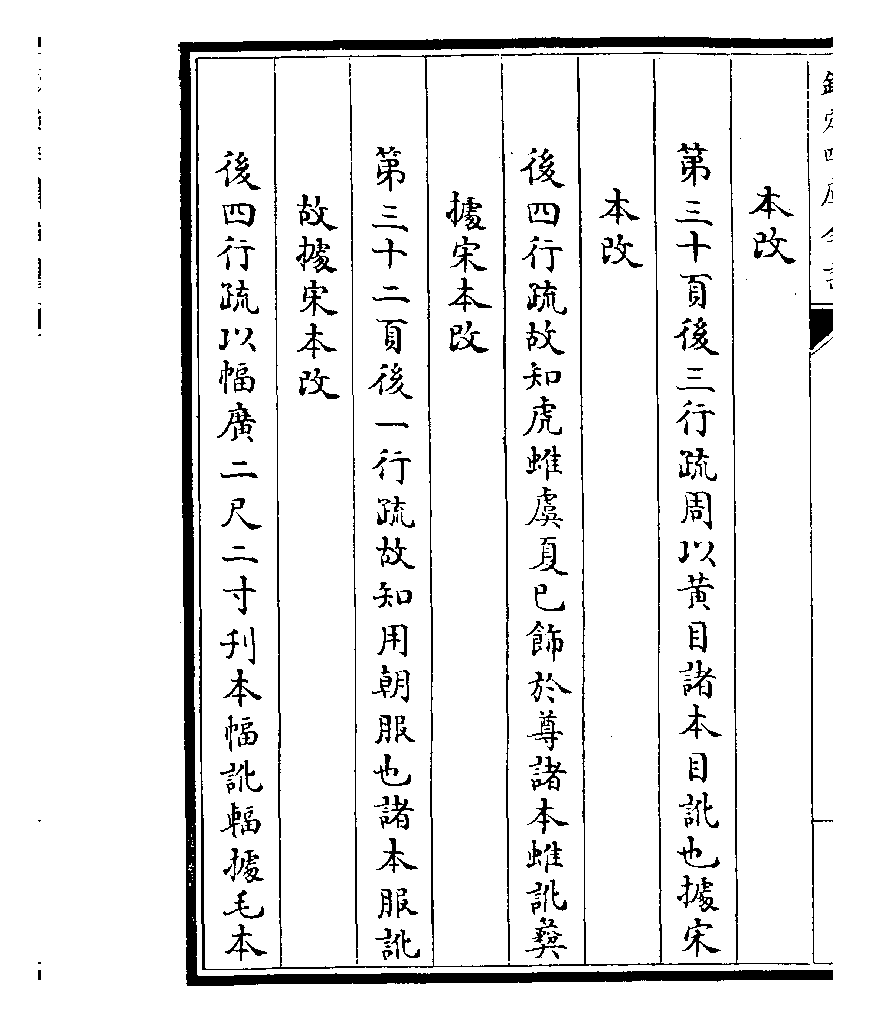 本改
第三十頁後三行疏周以黄目諸本目訛也據宋
本改
後四行疏故知虎蜼虞夏已飾於尊諸本蜼訛彝
據宋本改
第三十二頁後一行疏故知用朝服也諸本服訛
故據宋本改
後四行疏以幅廣二尺二寸刋本幅訛輻據毛本